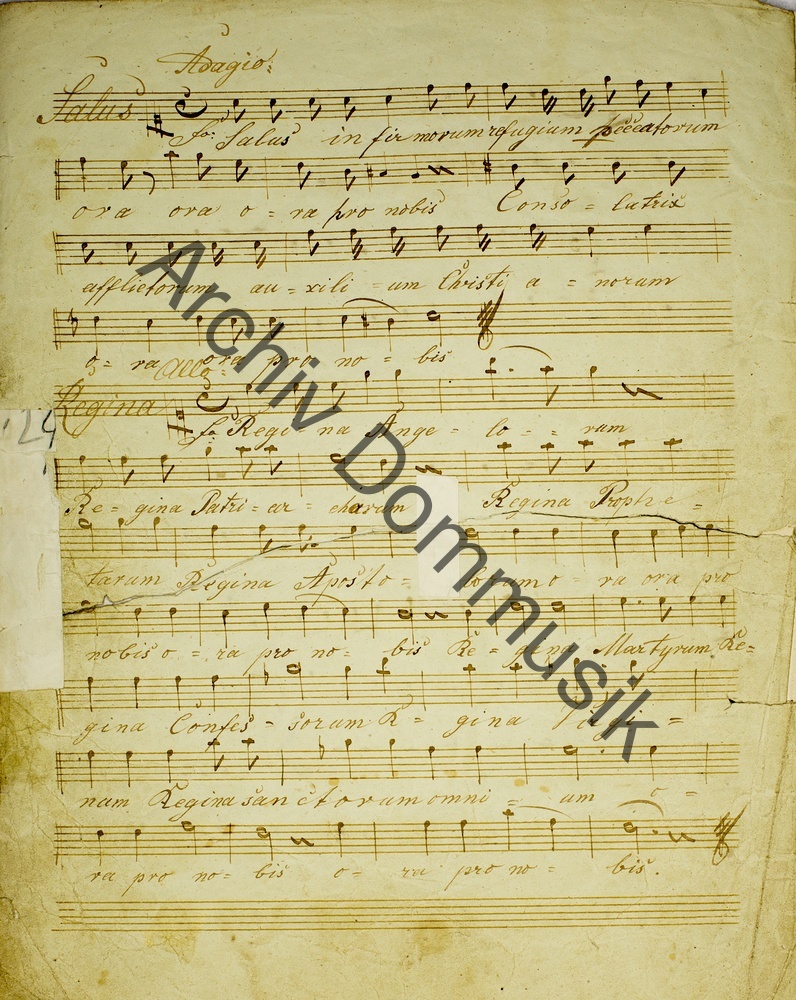 Adagio:
Salus
fo: Salus in fir morum refugium peccatorum
ora ora o = ra pro nobis Conso = latrix
afflictorum au = xili = um Christi a = norum
o = ra ora pro no = bis
Allo
Regina
fo Regi = na Ange = lo = = rum
124
Re = gina Patri = ar = charum Regina Prophe =
tarum Regina Aposto = lorum o = ra ora pro
nobis o = ra pro no = bis Re = gina Martyrum Re =
gina Confes = sorum R = gina Virgi =
num Regina sanctorum omni = um o =
ra pro no = bis o = ra pro no = bis.
Archiv Dommusik